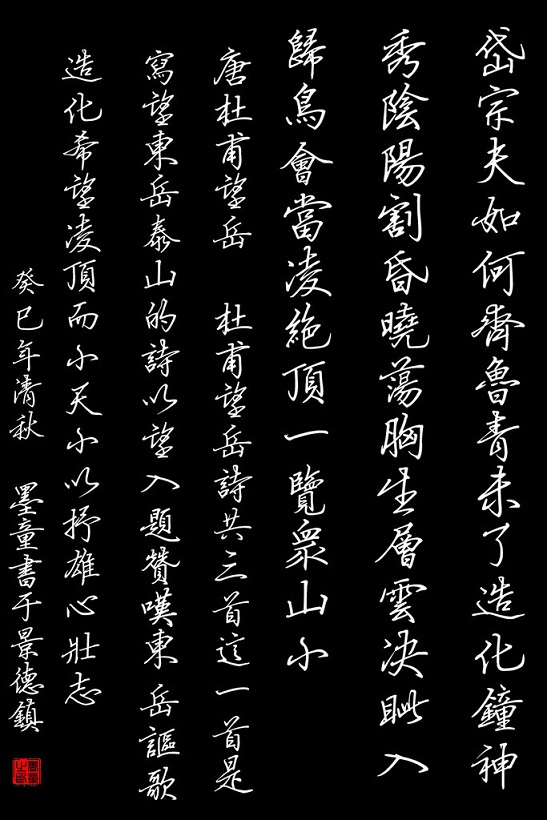 岱宗夫如何齊魯青未了造化鐘神
秀陰陽割昏曉蕩胸生層雲決眦入
歸鳥會當凌絶頂一覽衆山小
唐杜甫望岳 杜甫望岳詩共三首這一首是
寫望東岳泰山的詩以望入題贊嘆東岳謳歌
造化希望凌頂而小天小以抒雄心壯志
癸巳年清秋 墨童書于景德鎮